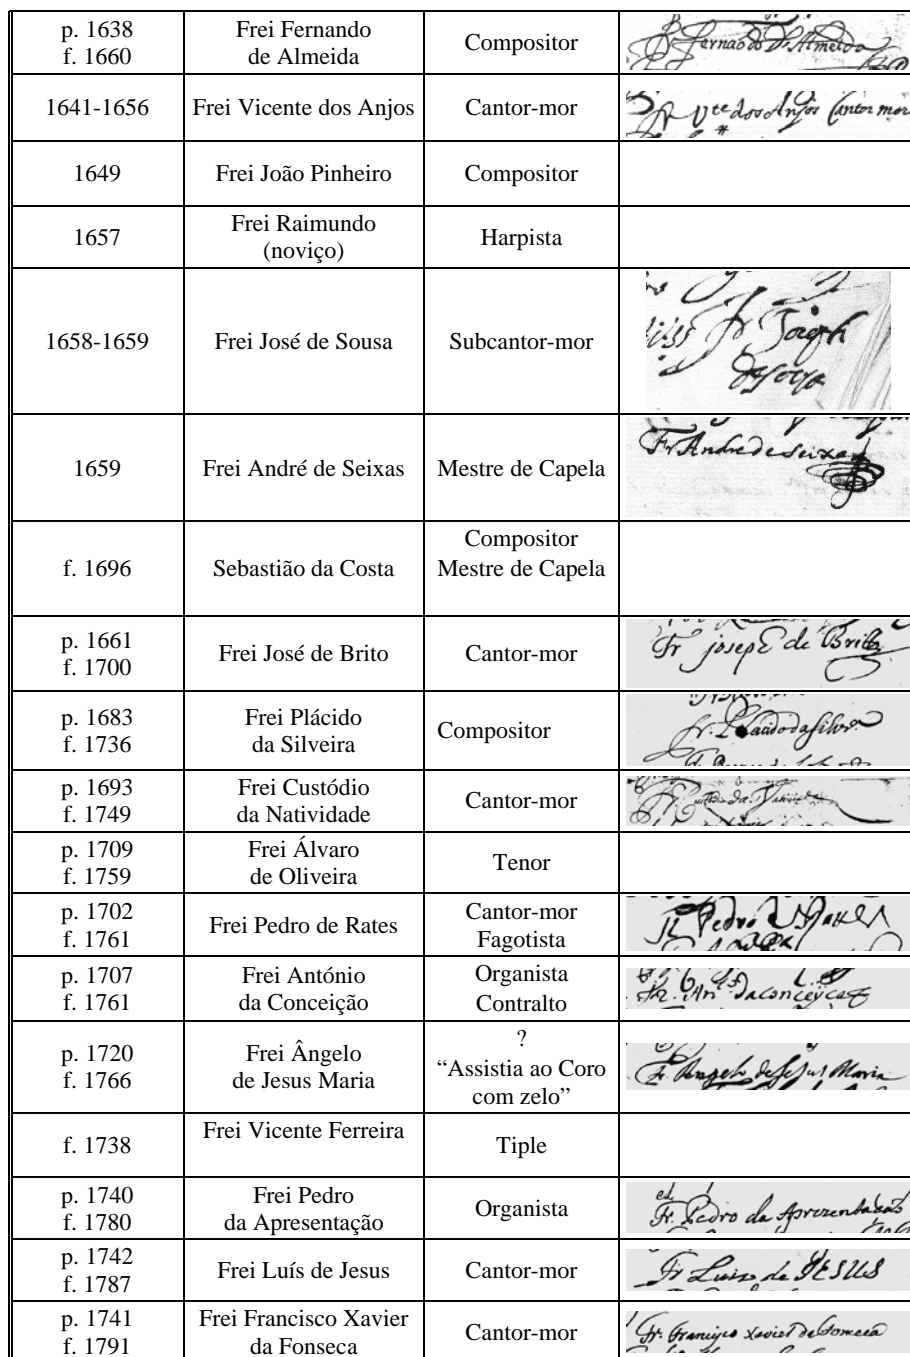 p. 1638
f. 1660
Frei Fernando
de Almeida
Compositor
Fr Fernando d Almeida
1641-1656
Frei Vicente dos Anjos
Cantor-mor
Fr Vte dos Anjos Cantor mor
1649
Frei João Pinheiro
Compositor
1657
Frei Raimundo
(noviço)
Harpista
1658-1659
Frei José de Sousa
Subcantor-mor
fr Joseph
1659
Frei André de Seixas
Mestre de Capela
Fr Andre de seixas
f. 1696
Sebastião da Costa
Compositor
Mestre de Capela
p. 1661
f. 1700
Frei José de Brito
Cantor-mor
Fr joseph de Britto
p. 1683
f. 1736
Frei Plácido
da Silveira
Compositor
p. 1693
f. 1749
Frei Custódio
da Natividade
Cantor-mor
p. 1709
f. 1759
Frei Álvaro
de Oliveira
Tenor
p. 1702
f. 1761
Frei Pedro de Rates
Cantor-mor
Fagotista
Fr Pedro de
p. 1707
f. 1761
Frei António
da Conceição
Organista
Contralto
p. 1720
f. 1766
Frei Ângelo
de Jesus Maria
?
“Assistia ao Coro
com zelo”
Fr. Angelo de Jesus Maria
f. 1738
Frei Vicente Ferreira
Tiple
p. 1740
f. 1780
Frei Pedro
da Apresentação
Organista
Fr. Pedro da
p. 1742
f. 1787
Frei Luís de Jesus
Cantor-mor
Fr Luis de JESUS
p. 1741
f. 1791
Frei Francisco Xavier
da Fonseca
Cantor-mor
Fr. Francisco Xavier da Fonseca